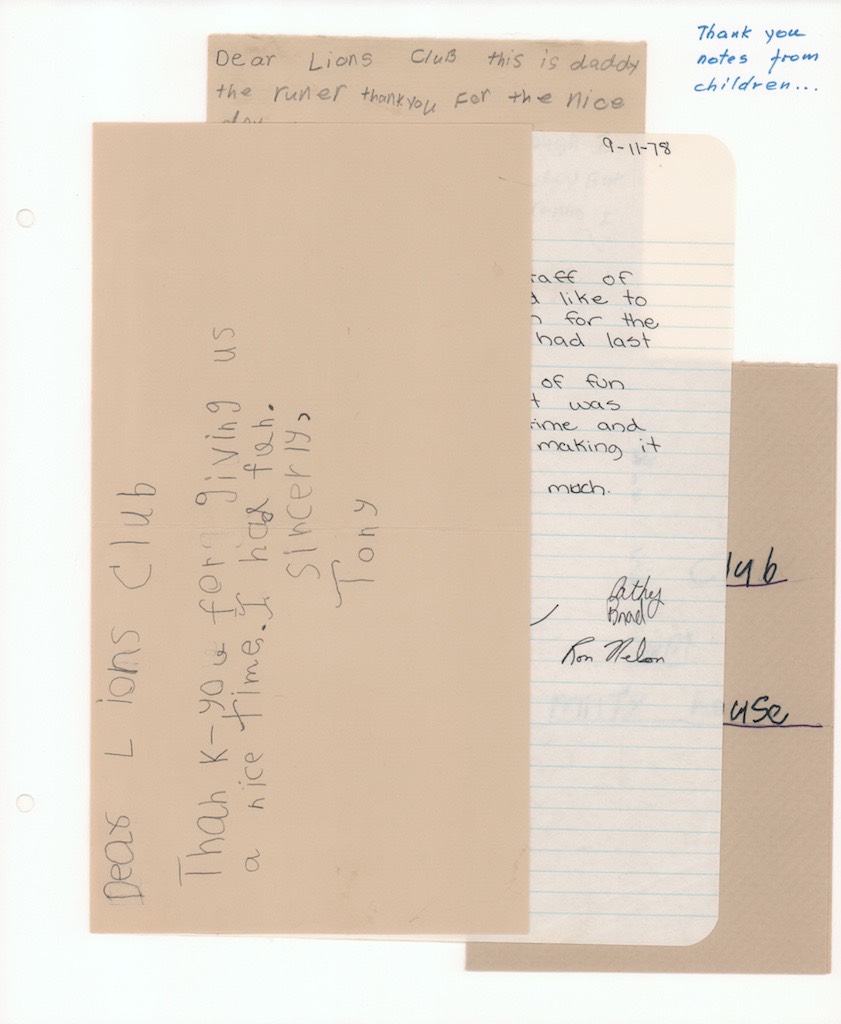 Thank you
notes from
children...
Dear Lions Club this is daddy
the runer thankyou For the nice
day
9-11-78
taff of
d like to
n for the
had last
of fun
t was
time and
making it
much.
Cathy
Brad
Ron Nelson
Dear Lions Club
Thank-you for giving us
a nice time. I had fun.
Sincerly,
Tony
lub
use